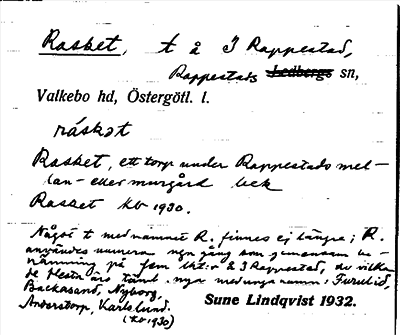 Rasket, t å I Rappestad,
Rappestads Ledbergs sn,
Valkebo hd, Östergötl. l.
ráskət
Rasket, ett torp under Rappestads mel-
lan- eller
Rasket kb 1930.
Något t med namnet R. finnes ej längre; R.
användes numera ngn gång som gemensam be-
nämning på fem lht:r å I Rappestad, av vilka
de flesta äro nya med unga namn: Furulid,
Backasand, Nyborg,
Anderstorp, Karlslund.
(kb 1930)
Sune Lindqvist 1932.